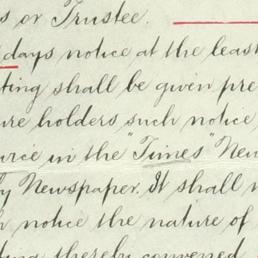 s or Trustee.
days notice at the least
ting shall be given pre
ure holders such notice
urce in the "Times" New
ly Newspaper. It shall
h notice the nature of
ting thereby convened